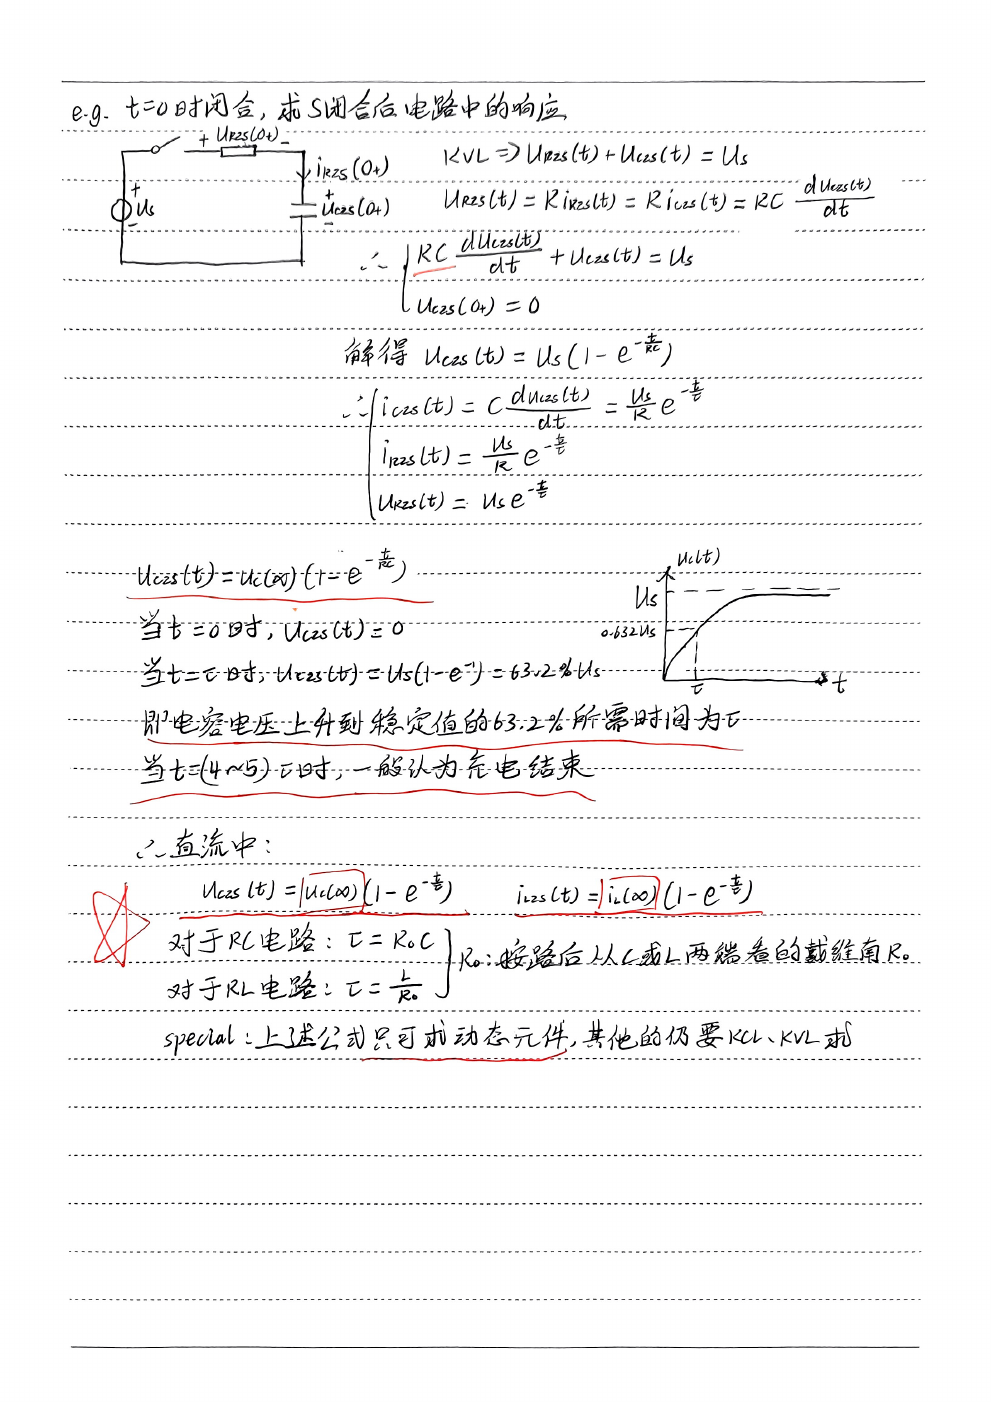 e.g. t=0时闭合，求S闭合后电路中的响应
+ URzs(0+) -
iRzs(0+)
+ Us -
+ uczs(0+) -
KVL => URzs(t)+Uczs(t)=Us
URzs(t)=RiRzs(t)=Riczs(t)=RC duczs(t)/dt
∴ { RC duczs(t)/dt + uczs(t)=Us
uczs(0+)=0
解得 Uczs(t)=Us(1-e^(-t/RC))
∴ { iczs(t)=C duczs(t)/dt = Us/R e^(-t/τ)
iRzs(t)= Us/R e^(-t/τ)
URzs(t)= Us e^(-t/τ)
Uczs(t)=Uc(∞)(1-e^(-t/RC))
当t=0时，Uczs(t)=0
当t=τ时，Uczs(t)=Us(1-e^-1)=63.2%Us
uc(t)
Us
0.632Us
τ
t
即电容电压上升到稳定值的63.2%所需时间为τ
当t=(4~5)τ时，一般认为充电结束
∴直流中：
Uczs(t)=Uc(∞)(1-e^(-t/τ)) iLzs(t)=iL(∞)(1-e^(-t/τ))
对于RC电路：τ=R₀C
对于RL电路：τ=L/R₀
} R₀：换路后从C或L两端看的戴维南R₀
special：上述公式只可求动态元件，其他的仍要KCL、KVL求